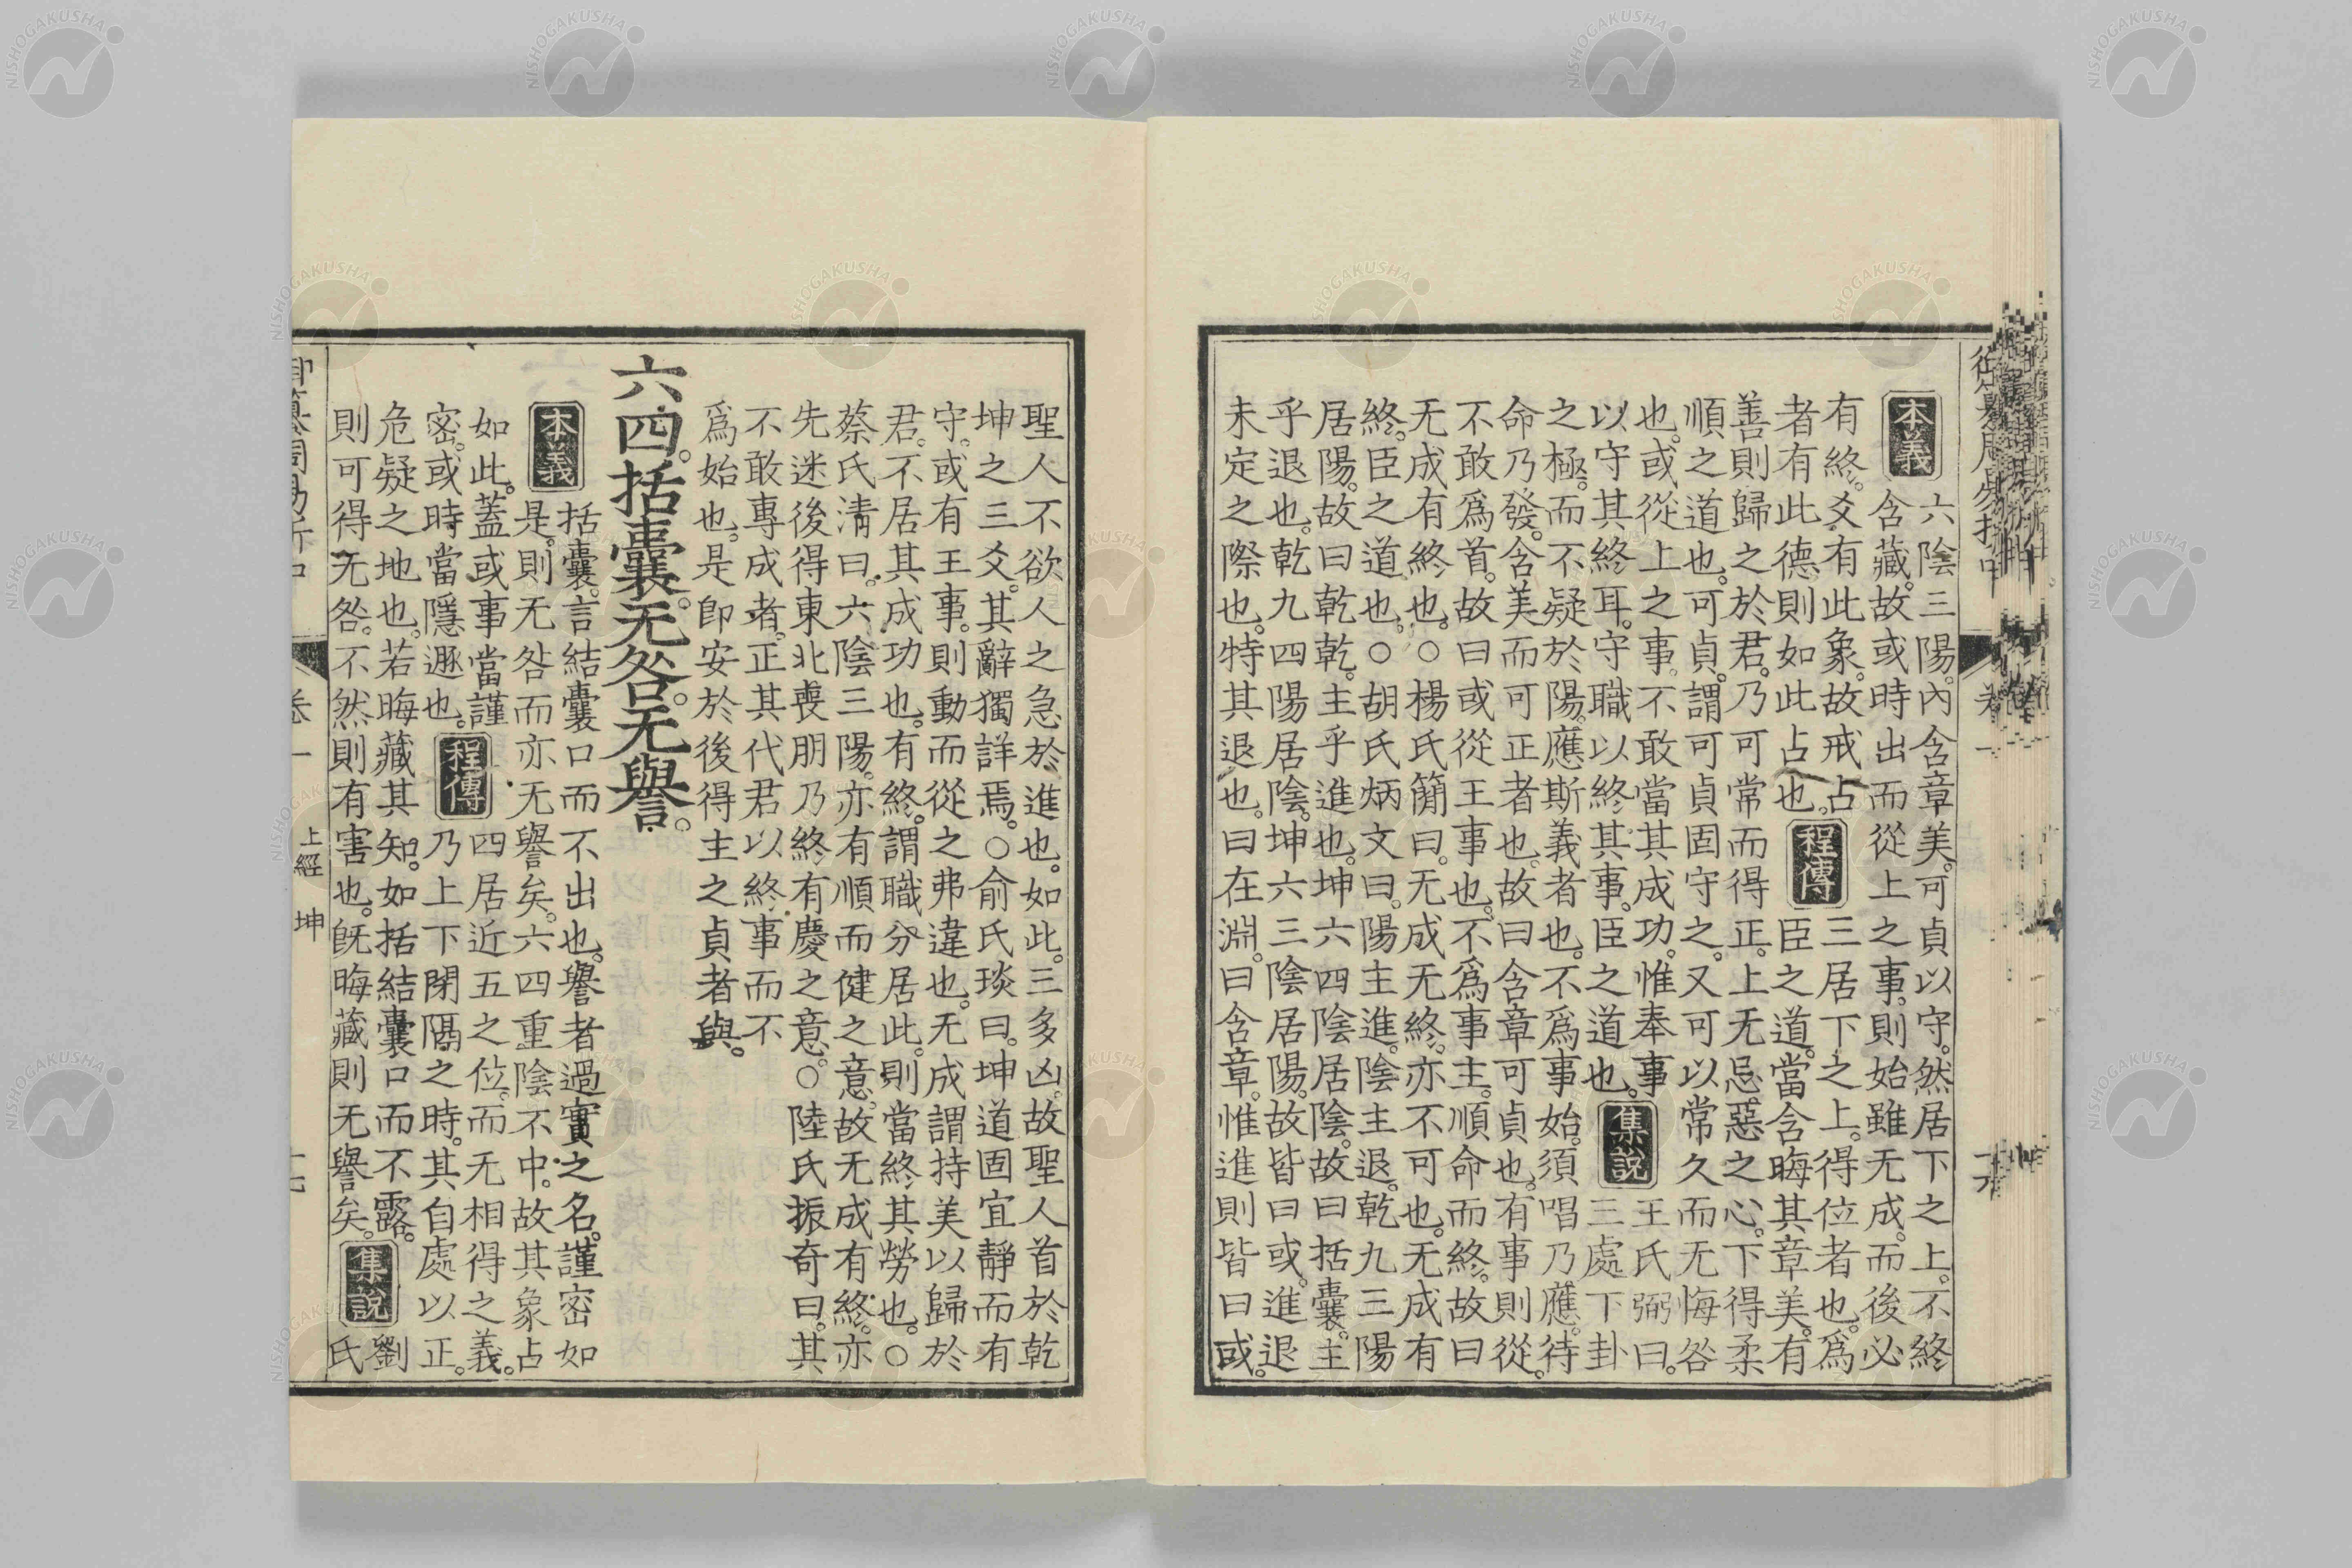 本義
六陰三陽。內含章美。可貞以守。然居下之上。不終
含藏。故或時出而從上之事。則始雖无成。而後必
有終。爻有此象。故戒占
者有此德。則如此占也。
程傳
三居下之上。得位者也。爲
臣之道。當含晦其章美。有
善則歸之於君。乃可常而得正。上无忌惡之心。下得柔
順之道也。可貞。謂可貞固守之。又可以常久而无悔咎
也。或從上之事。不敢當其成功。惟奉事
以守其終耳。守職以終其事。臣之道也。
集說
王氏弼曰。
三處下卦
之極。而不疑於陽。應斯義者也。不爲事始。須唱乃應。待
命乃發。含美而可正者也。故曰含章可貞也。有事則從。
不敢爲首。故曰或從王事也。不爲事主。順命而終。故曰
无成有終也。○楊氏簡曰。无成无終。亦不可也。无成有
終。臣之道也。○胡氏炳文曰。陽主進。陰主退。乾九三陽
居陽。故曰乾乾。主乎進也。坤六四陰居陰。故曰括囊。主
乎退也。乾九四陽居陰。坤六三陰居陽。故皆曰或。進退
未定之際也。特其退也。曰在淵。曰含章。惟進則皆曰或。
聖人不欲人之急於進也。如此。三多凶。故聖人首於乾
坤之三爻。其辭獨詳焉。○俞氏琰曰。坤道固宜靜而有
守。或有王事。則動而從之弗違也。无成謂持美以歸於
君。不居其成功也。有終。謂職分居此。則當終其勞也。○
蔡氏清曰。六陰三陽。亦有順而健之意。故无成有終。亦
先迷後得東北喪朋乃終有慶之意。○陸氏振奇曰。其
不敢專成者。正其代君以終事而不
爲始也。是卽安於後得主之貞者與。
六四。括囊。无咎。无譽。
本義
括囊。言結囊口而不出也。譽者過實之名。謹密如
是。則无咎而亦无譽矣。六四重陰不中。故其象占
如此。蓋或事當謹
密。或時當隱遯也。
程傳
四居近五之位。而无相得之義。
乃上下閉隔之時。其自處以正。
危疑之地也。若晦藏其知。如括結囊口而不露。
則可得无咎。不然則有害也。旣晦藏則无譽矣。
集說
劉
氏
卷一
上經 坤